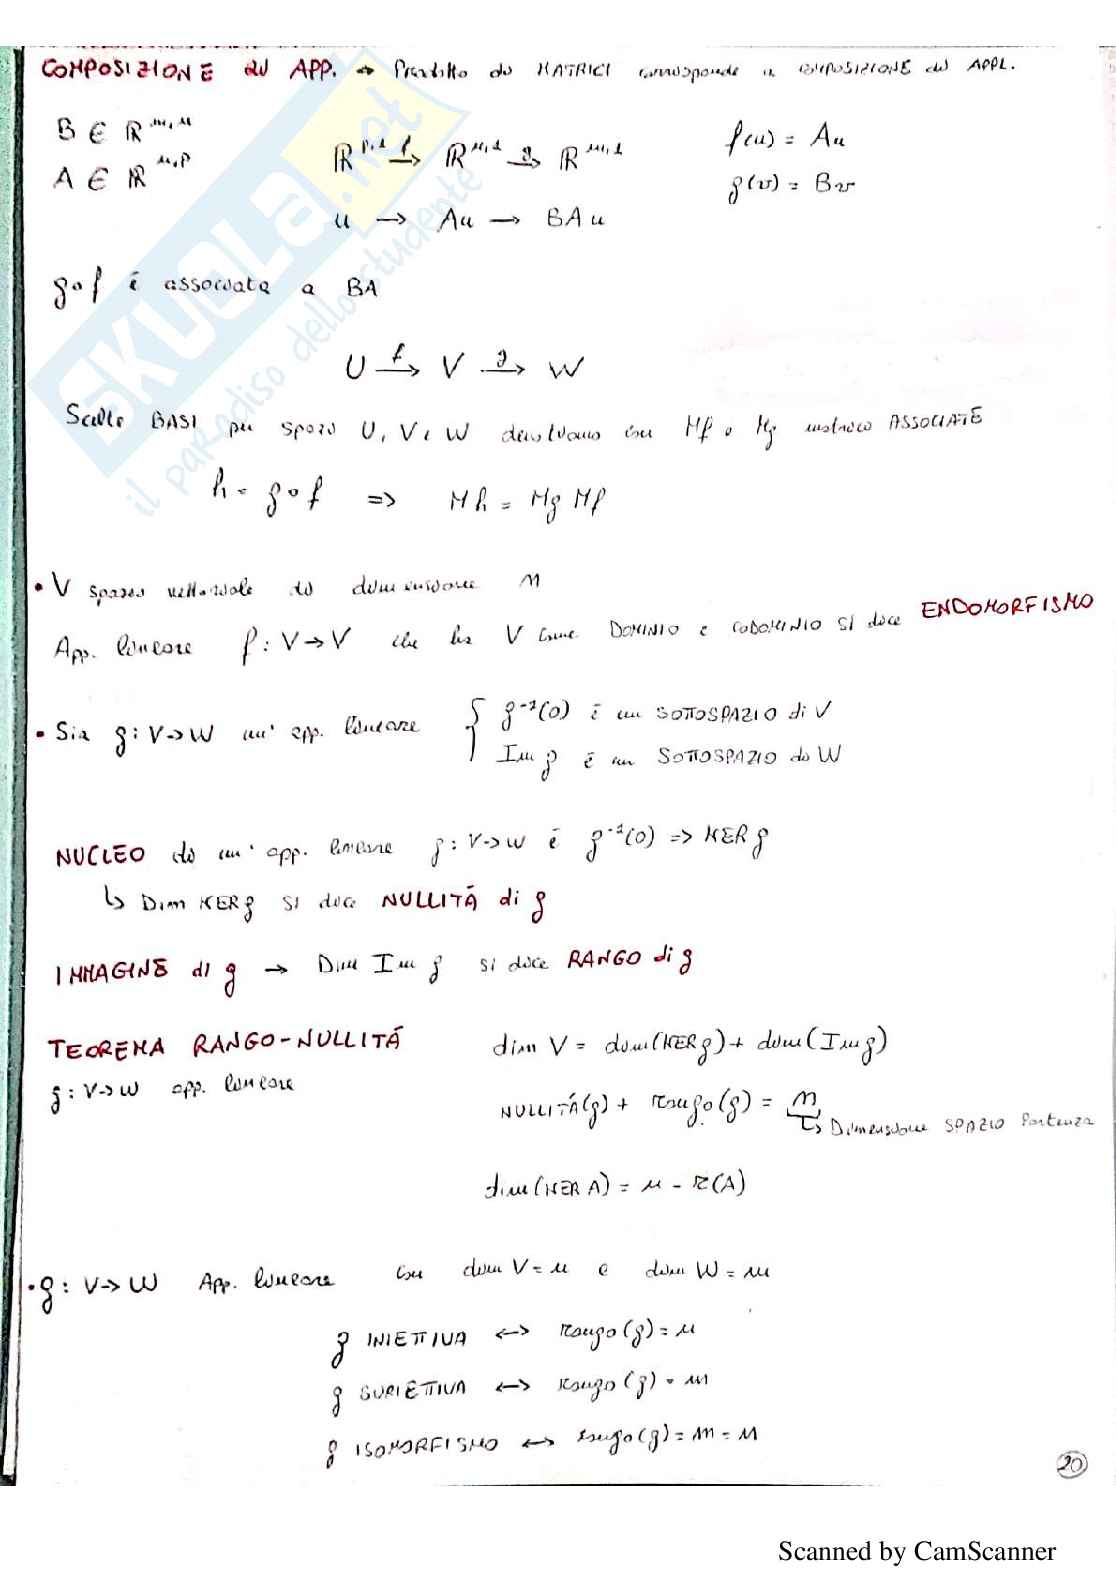 COMPOSIZIONE di APP. → Prodotto di MATRICI corrisponde a COMPOSIZIONE di APPL.
B ∈ ℝ^m,n
A ∈ ℝ^n,p
ℝ^p,1 f→ ℝ^n,1 g→ ℝ^m,1
u → Au → BAu
f(u) = Au
g(v) = Bv
g∘f è associata a BA
U f→ V g→ W
Scelte BASI per spazi U, V e W denotiamo con Mf e Mg matrici ASSOCIATE
h = g∘f => Mh = Mg Mf
• V spazio vettoriale di dimensione n
App. lineare f: V→V che ha V come DOMINIO e CODOMINIO si dice ENDOMORFISMO
• Sia g: V→W un' app. lineare { g⁻¹(0) è un SOTTOSPAZIO di V
Im g è un SOTTOSPAZIO di W
NUCLEO di un' app. lineare g: V→W è g⁻¹(0) => KER g
↳ Dim KER g si dice NULLITÁ di g
IMMAGINE di g → Dim Im g si dice RANGO di g
TEOREMA RANGO-NULLITÁ
g: V→W app. lineare
dim V = dim(KER g) + dim(Im g)
NULLITÁ(g) + rango(g) = n
↳ Dimensione SPAZIO Partenza
dim(KER A) = n - r(A)
• g: V→W App. lineare con dim V = n e dim W = m
g INIETTIVA ↔ rango(g) = n
g SURIETTIVA ↔ rango(g) = m
g ISOMORFISMO ↔ rango(g) = m = n
20
SKUOLA.net
il paradiso dello studente
Scanned by CamScanner